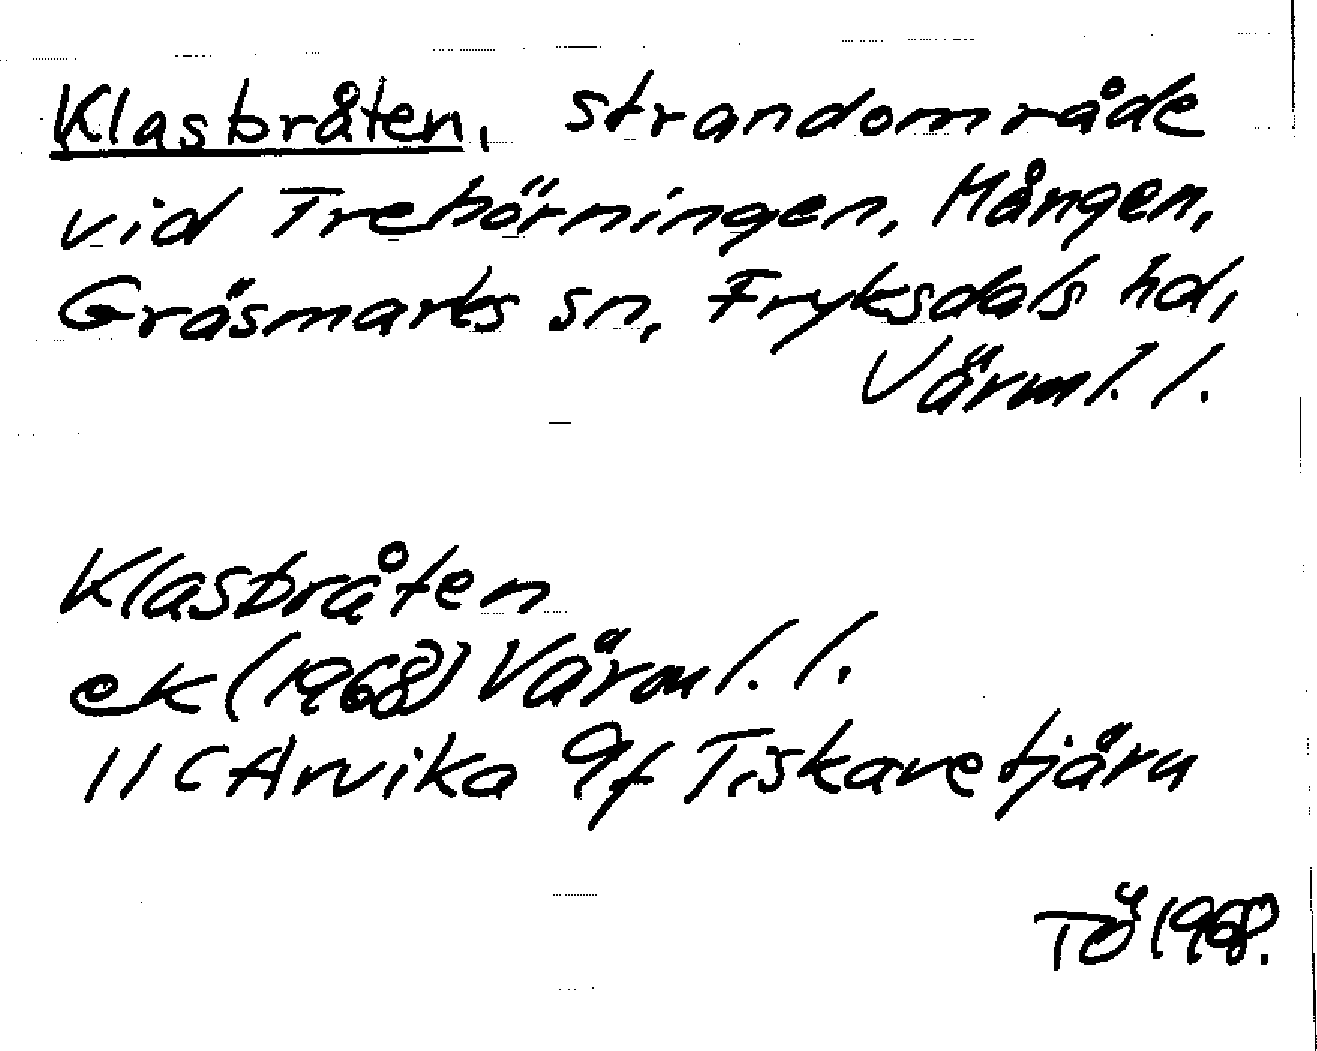 Klasbråten, strandområde
vid Trebörningen, Mången,
Gräsmarks sn, Fryksdals hd,
Värml. l.
Klasbråten
ek (1968) Värml. l.
11 C Arvika 9f Tiskaretjärn
TÖ 1968.